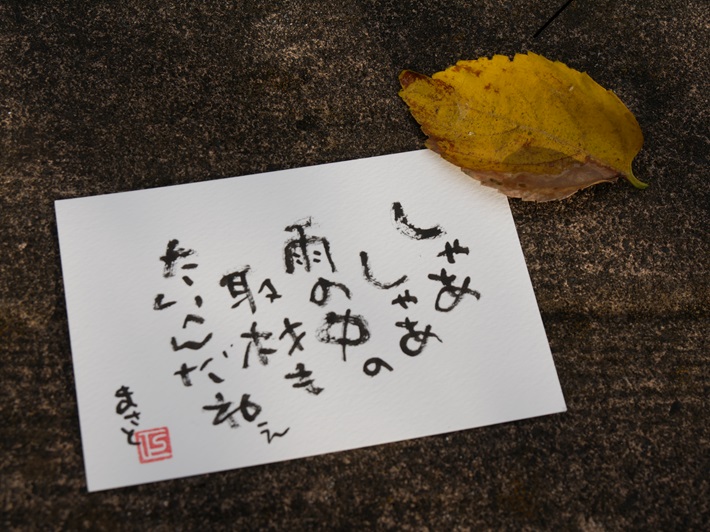 しゃあ
しゃあの
雨の中
取材
たいへんだねえ
まさと